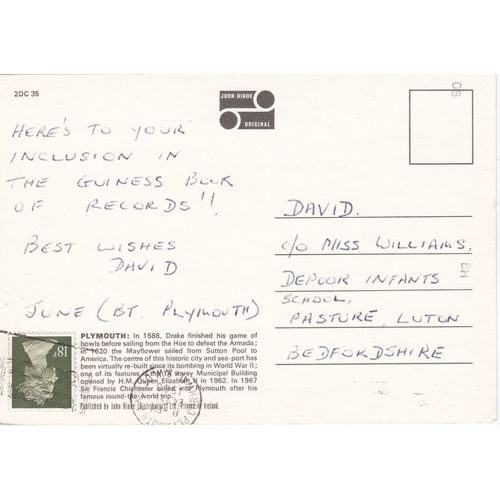 2DC 35
JOHN HINDE
ORIGINAL
HERE'S TO YOUR
INCLUSION IN
THE GUINESS BOOK
OF RECORDS!!
BEST WISHES
DAVID
JUNE (BT. PLYMOUTH)
DAVID.
C/O MISS WILLIAMS.
DEPOOR INFANTS
SCHOOL,
PASTURE, LUTON
BEDFORDSHIRE
18P
PLYMOUTH: In 1588, Drake finished his game of
bowls before sailing from the Hoe to defeat the Armada;
in 1620 the Mayflower sailed from Sutton Pool to
America. The centre of this historic city and sea-port has
been virtually re-built since its bombing in World War II;
one of its features is the storey Municipal Building
opened by H.M. Queen Elizabeth II in 1962. In 1967
Sir Francis Chichester sailed into Plymouth after his
famous round-the-world trip.
Published by John Hinde (Distributors) Ltd. Printed in Ireland.